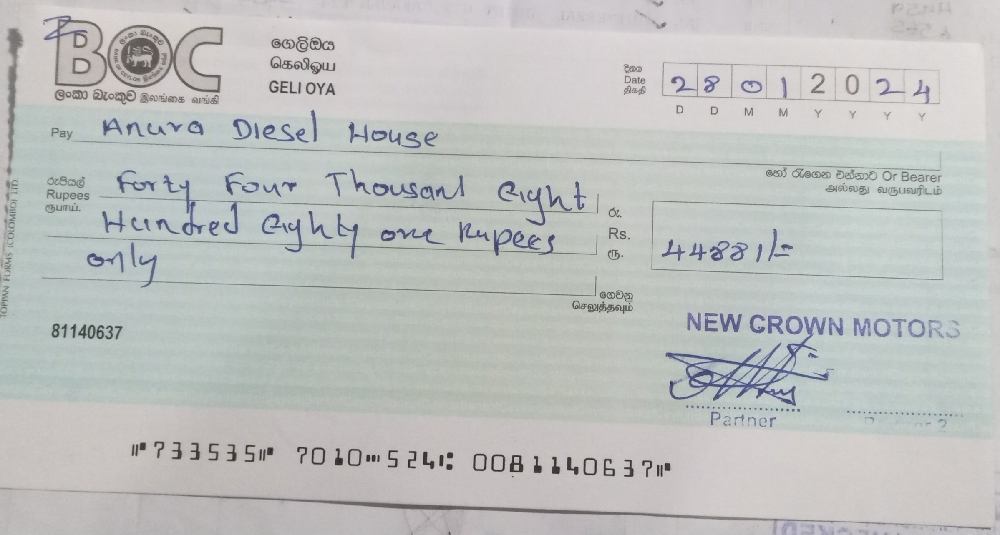 BOC
ලංකා බැංකුව இலங்கை வங்கி
ගෙලිඔය
கெலிஓய
GELI OYA
දිනය
Date
திகதி
28 01 2024
D D M M Y Y Y Y
Pay Anura Diesel House
හෝ රැගෙන එන්නාට Or Bearer
அல்லது வருபவரிடம்
රුපියල්
Rupees
ரூபாய்.
Forty Four Thousand Eight
Hundred Eighty one Rupees
only
රු.
Rs.
ரூ.
44881/=
ගෙවනු
செலுத்தவும்
TOPPAN FORMS (COLOMBO) LTD.
81140637
NEW CROWN MOTORS
Partner
⑈733535⑈ 7010⑉524⑆ 0081140637⑈